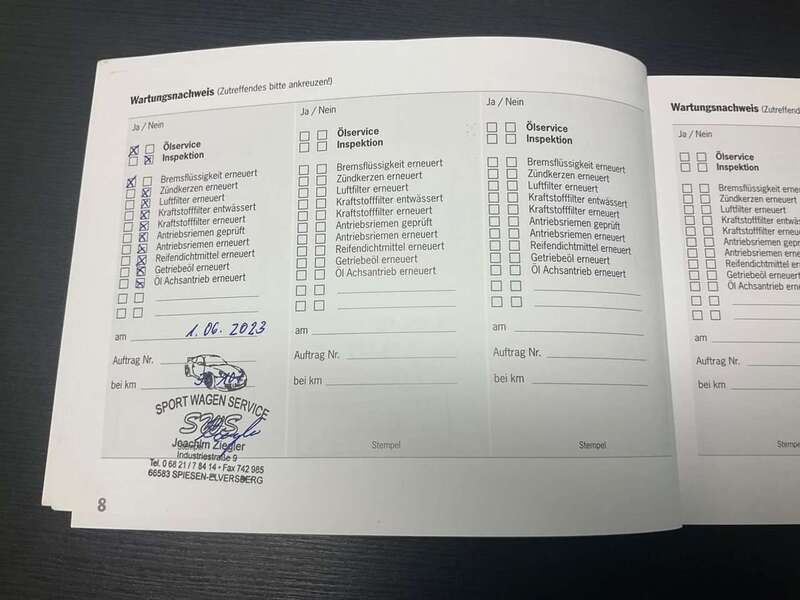 Wartungsnachweis (Zutreffendes bitte ankreuzen!)
Ja / Nein
Ölservice
Inspektion
Bremsflüssigkeit erneuert
Zündkerzen erneuert
Luftfilter erneuert
Kraftstofffilter entwässert
Kraftstofffilter erneuert
Antriebsriemen geprüft
Antriebsriemen erneuert
Reifendichtmittel erneuert
Getriebeöl erneuert
Öl Achsantrieb erneuert
am 1.06.2023
Auftrag Nr.
bei km
SPORT WAGEN SERVICE
SWS
Joachim Ziegler
Industriestraße 9
Tel. 0 68 21 / 7 84 14 • Fax 742 985
66583 SPIESEN-ELVERSBERG
8
Ja / Nein
Ölservice
Inspektion
Bremsflüssigkeit erneuert
Zündkerzen erneuert
Luftfilter erneuert
Kraftstofffilter entwässert
Kraftstofffilter erneuert
Antriebsriemen geprüft
Antriebsriemen erneuert
Reifendichtmittel erneuert
Getriebeöl erneuert
Öl Achsantrieb erneuert
am
Auftrag Nr.
bei km
Stempel
Ja / Nein
Ölservice
Inspektion
Bremsflüssigkeit erneuert
Zündkerzen erneuert
Luftfilter erneuert
Kraftstofffilter entwässert
Kraftstofffilter erneuert
Antriebsriemen geprüft
Antriebsriemen erneuert
Reifendichtmittel erneuert
Getriebeöl erneuert
Öl Achsantrieb erneuert
am
Auftrag Nr.
bei km
Stempel
Wartungsnachweis (Zutreffendes
Ja / Nein
Ölservice
Inspektion
Bremsflüssigkeit erneuert
Zündkerzen erneuert
Luftfilter erneuert
Kraftstofffilter entwässert
Kraftstofffilter erneuert
Antriebsriemen geprüft
Antriebsriemen erneuert
Reifendichtmittel erneuert
Getriebeöl erneuert
Öl Achsantrieb erneuert
am
Auftrag Nr.
bei km
Stempel